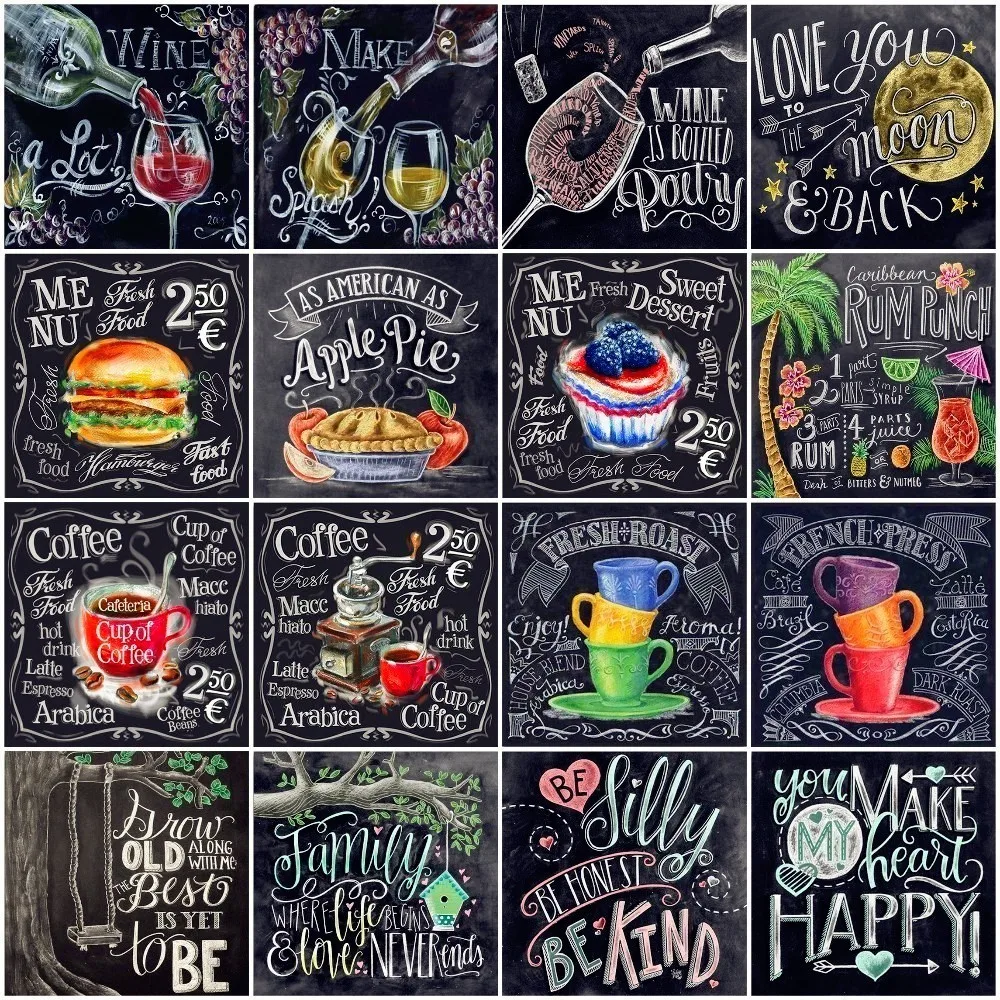 WINE
a Lot!
MAKE
Splash!
VINEYARDS
WINE
IS BOTTLED
Poetry
LOVE you
TO
THE
moon
& BACK
ME
NU
Fresh
Food
250
€
Fresh
Food
fresh
food
Hamburger
Fast
food
AS AMERICAN AS
Apple Pie
ME
NU
Fresh
Sweet
Dessert
Food
Fruits
Fresh
Food
fresh
food
Fresh Food
250
€
Caribbean
RUM PUNCH
1 part
2 PARTS simple
SYRUP
3 PARTS
RUM
4 PARTS
juice
OR
Dash of BITTERS & NUTMEG
Coffee
Cup of
Coffee
Fresh
Food
Macc
hiato
Cafeteria
Cup of
Coffee
hot
drink
Fresh
Latte
Espresso
Arabica
250
€
Coffee
Beans
Coffee
250
€
Fresh
Macc
hiato
Fresh
Food
hot
drink
Fresh
Latte
Espresso
Arabica
Cup of
Coffee
FRESH ROAST
Enjoy!
Aroma!
HOUSE BLEND
Arabica
COFFEE
FRENCH PRESS
Café
Latté
Brazil
Costa Rica
COLUMBIA
DARK ROAST
Grow
OLD ALONG
WITH ME
THE Best
IS YET
to BE
Family
WHERE life BEGINS
& love NEVER ends
BE
Silly
BE HONEST
BE KIND
you MAKE
MY heart
HAPPY!